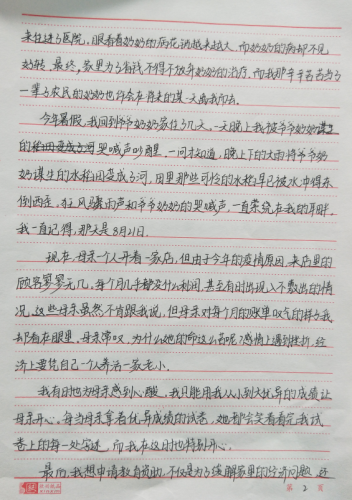 来住进了医院,眼看着奶奶的病花销越来越大,而奶奶的病却不见
好转,最终,家里为了省钱不得不放弃奶奶的治疗,而我那辛辛苦苦当了
一辈子农民的奶奶也许会在将来的某一天离我而去。
今年暑假,我回到爷爷奶奶家住了几天,一天晚上我被爷爷奶奶
哭喊声吵醒。一问才知道,晚上下的大雨将爷爷奶
奶谋生的水稻田变成了河,田里那些可怜的水稻早已被水冲得东
倒西歪,狂风骤雨声和爷爷奶奶的哭喊声,一直萦绕在我的耳畔,
我一直记得,那天是8月21日。
现在,母亲一个人开着一家店,但由于今年的疫情原因,来店里的
顾客寥寥无几,每个月几乎都没什么利润,甚至有时出现入不敷出的情
况,这些母亲虽然不肯跟我说,但母亲对每个月的账单叹气的样子我
却看在眼里,母亲常叹,为什么她的命这么苦呢?感情上遇到挫折,经
济上要凭自己一个人养活一家老小。
我有时也为母亲感到心酸,我只能用我从小到大优异的成绩让
母亲开心,每当母亲拿着优异成绩的试卷,她都会笑着看完我试
卷上的每一处,而我在这时也特别开心。
最后,我想申请教育资助,不仅是为了缓解家里的经济问题,还
第 2 页